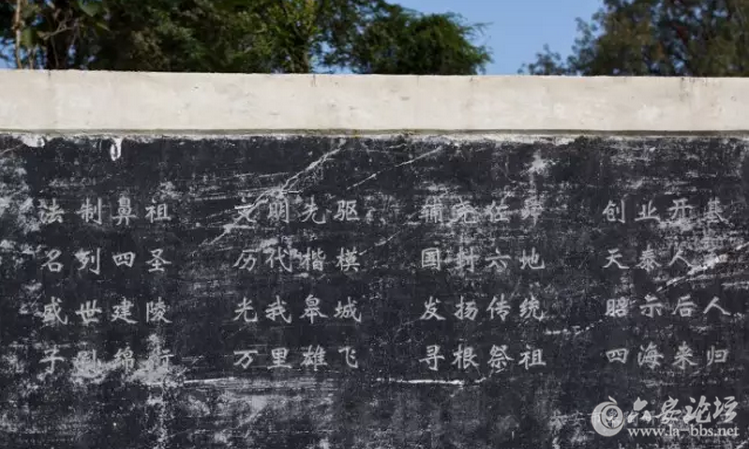 法制鼻祖 文明先驱 辅尧佐舜 创业开基
名列四圣 历代楷模 国封六地 天泰人
盛世建陵 光我皋城 发扬传统 昭示后人
子到绵衍 万里雄飞 寻根祭祖 四海来归
六安论坛
www.la-bbs.net